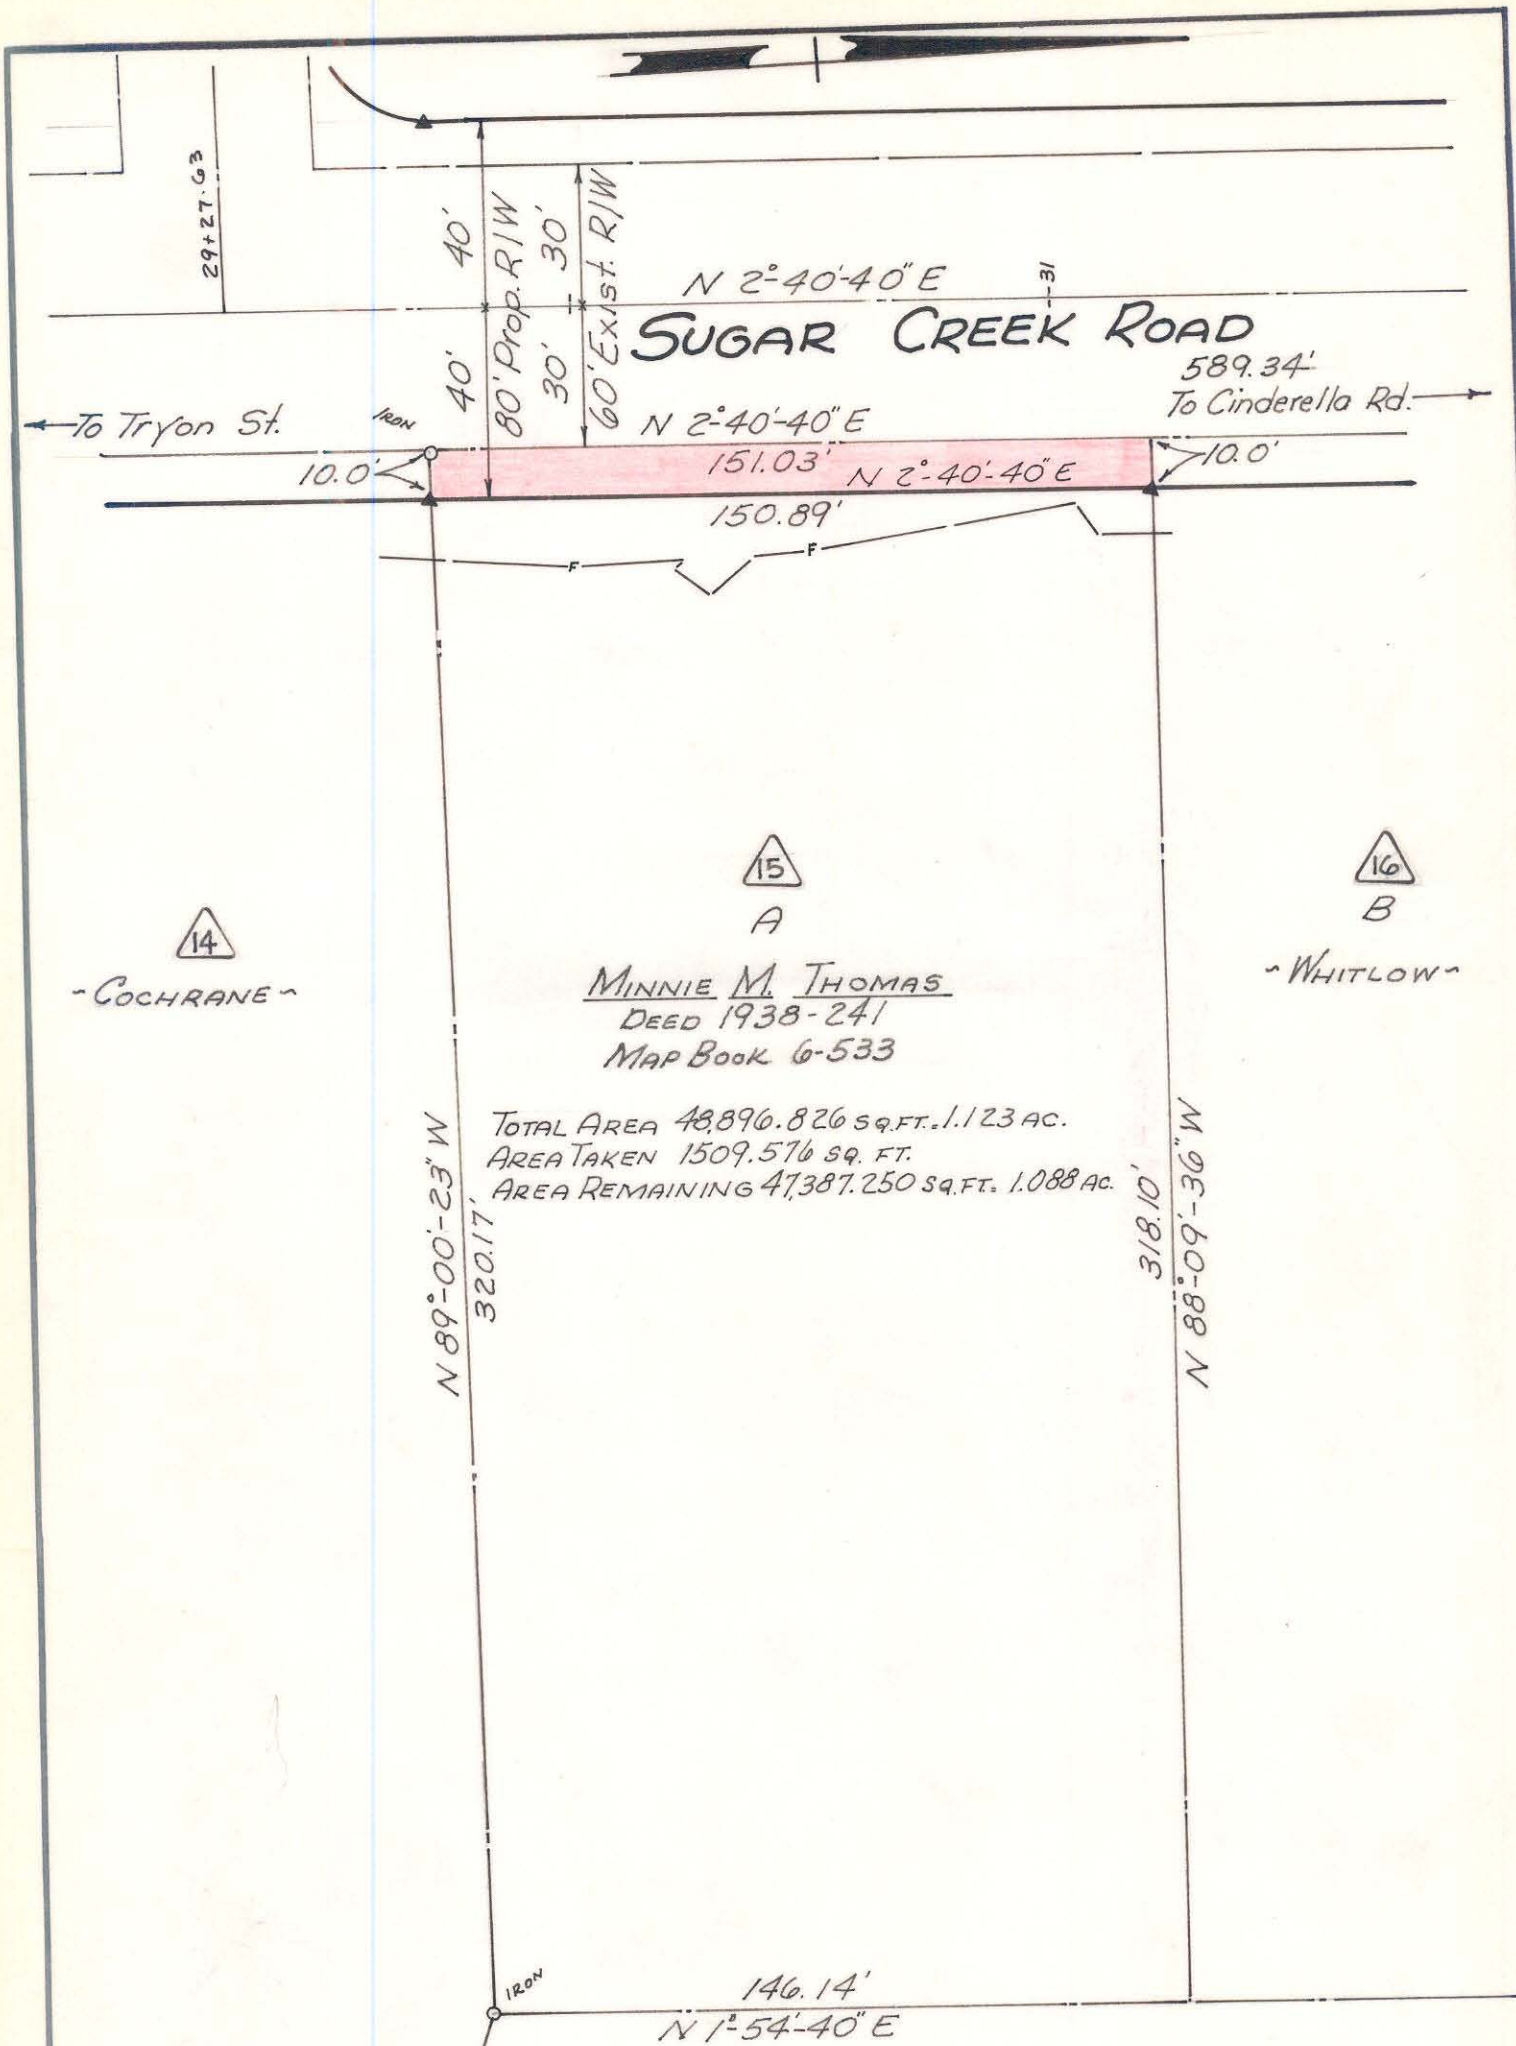 29+27.63
40'
40'
80' Prop. R/W
30'
30'
60' Exist. R/W
N 2°-40'-40" E
31
SUGAR CREEK ROAD
589.34'
To Cinderella Rd.
To Tryon St.
IRON
N 2°-40'-40" E
10.0'
151.03'
N 2°-40'-40" E
10.0'
150.89'
F
F
15
A
16
B
~WHITLOW~
14
~COCHRANE~
MINNIE M. THOMAS
DEED 1938-241
MAP BOOK 6-533
TOTAL AREA 48,896.826 SQ.FT. 1.123 AC.
AREA TAKEN 1509.576 SQ. FT.
AREA REMAINING 47,387.250 SQ.FT. 1.088 AC.
N 89°-00'-23" W
320.17'
318.10'
N 88°-09'-36" W
IRON
146.14'
N 1°-54'-40" E